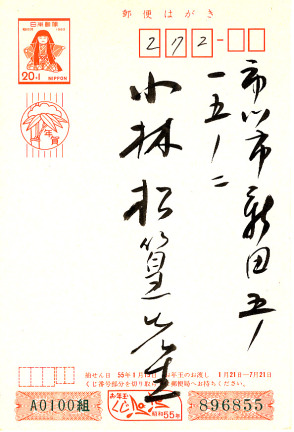 郵便はがき
日本郵便
20+1
NIPPON
年賀
272-
市川市新田五ノ
一五ノ二
小林松篁先生
抽せん日 55年1月15日 お年玉のお渡し 1月21日—7月21日
くじ番号部分を切り取らないで郵便局へお持ちください。
A0100組
お年玉
くじ
昭和55年
896855